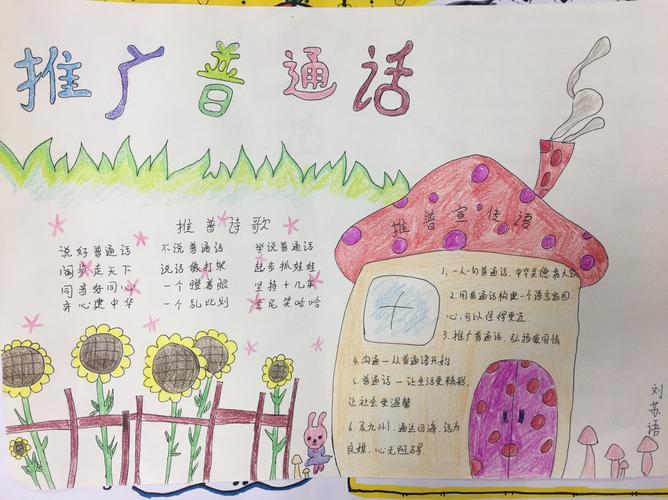 推广普通话
推普诗歌
说好普通话 不说普通话 学说普通话
阔步走天下 说话像打架 起步抓娃娃
同音好同心 一个瞪着眼 坚持十几年
齐心建中华 一个乱比划 全是笑哈哈
推普宣传语
1、一人一句普通话,中华美德
2、用普通话构建一个语言家园
心,可以住得更近
3、推广普通话,弘扬爱国情
4、沟通—从普通话开始
5、普通话—让生活更精彩,
让社会更温馨
6、及九州,通达四海,话为
良媒,心无阻碍
刘苏语